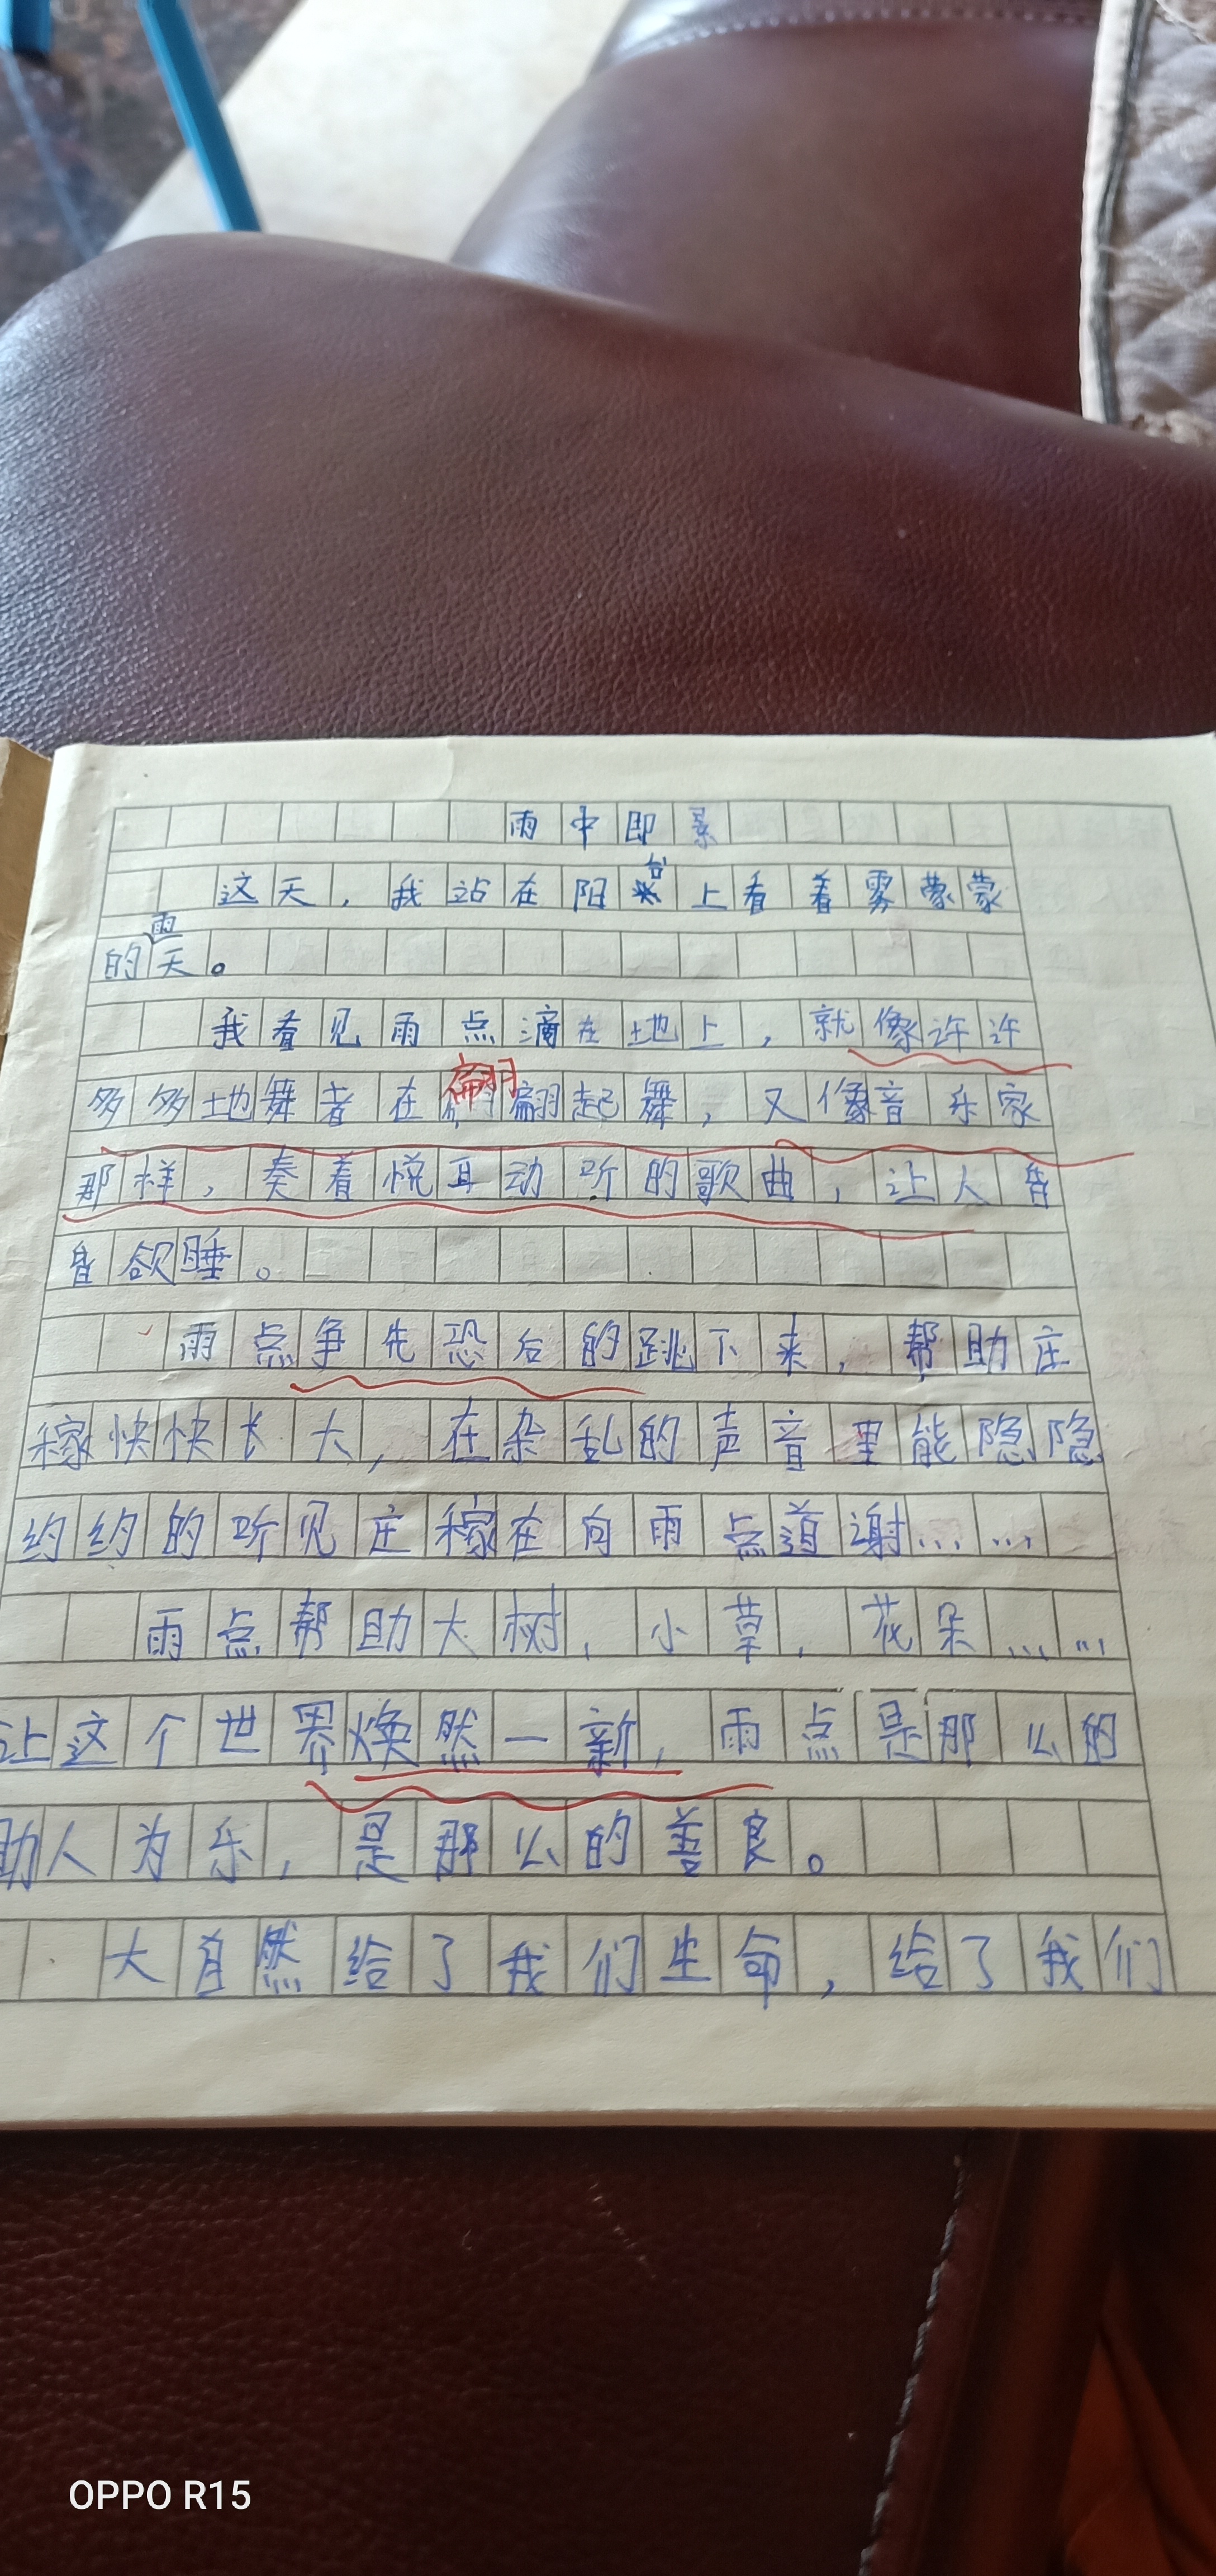 雨中即景
这天，我站在阳台上看着雾蒙蒙
的雨天。
我看见雨点滴在地上，就像许许
多多地舞者在翩翩起舞，又像音乐家
那样，奏着悦耳动听的歌曲，让人昏
昏欲睡。
雨点争先恐后的跳下来，帮助庄
稼快快长大，在杂乱的声音里能隐隐
约约的听见庄稼在向雨点道谢……
雨点帮助大树，小草，花朵……
让这个世界焕然一新，雨点是那么的
助人为乐，是那么的善良。
大自然给了我们生命，给了我们
OPPO R15